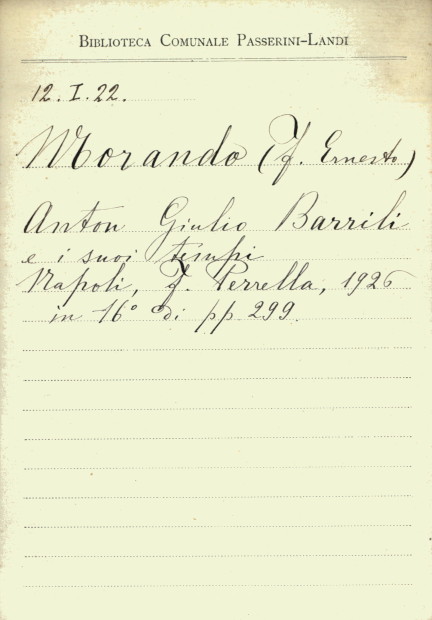 BIBLIOTECA COMUNALE PASSERINI-LANDI
12. I. 22.
Morando (F. Ernesto)
Anton Giulio Barrili
e i suoi tempi
Napoli, F. Perrella, 1926
in 16° di pp. 299.